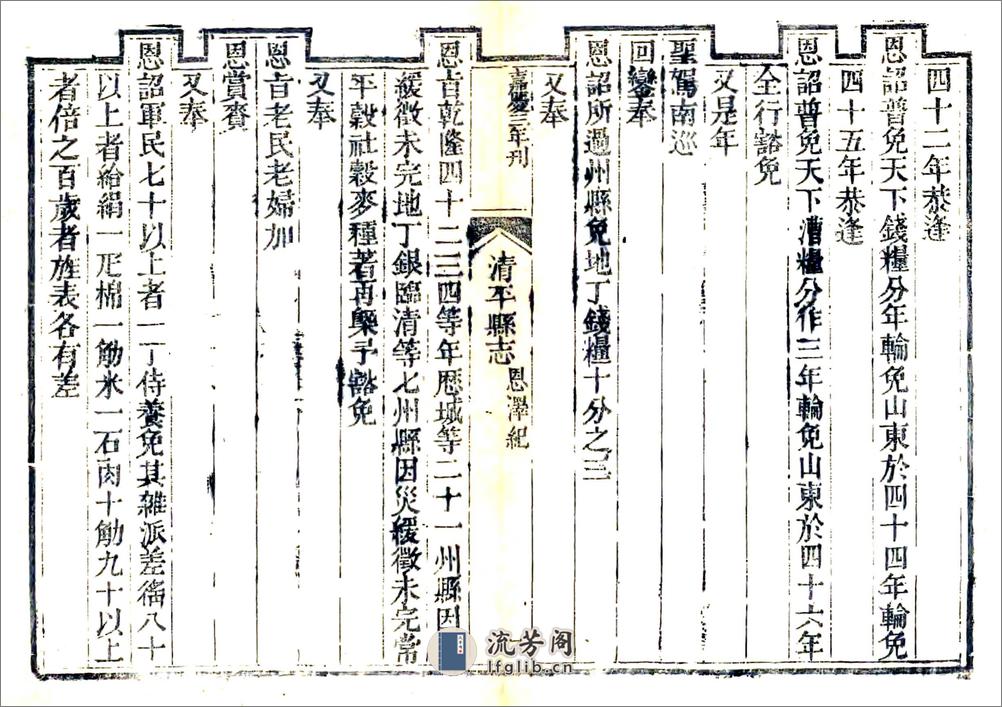 四十二年恭逢
恩詔普免天下錢糧分年輪免山東於四十四年輪免
四十五年恭逢
恩詔普免天下漕糧分作三年輪免山東於四十六年
全行豁免
又是年
聖駕南巡
回鑾奉
恩詔所過州縣免地丁錢糧十分之三
又奉
嘉慶三年刊
清平縣志
恩澤紀
恩旨乾隆四十二三四等年歷城等二十一州縣因
緩徵未完地丁銀臨清等七州縣因災緩徵未完常
平穀社穀麥種著再槩予豁免
又奉
恩旨老民老婦加
恩賞賚
又奉
恩詔軍民七十以上者一丁侍養免其雜派差徭八十
以上者給絹一疋棉一觔米一石肉十觔九十以上
者倍之百歲者旌表各有差
流芳阁
lfglib.cn